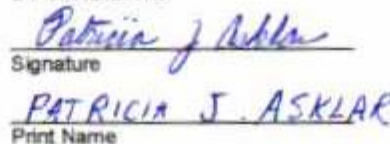 Patricia J Asklar
Signature
PATRICIA J. ASKLAR
Print Name